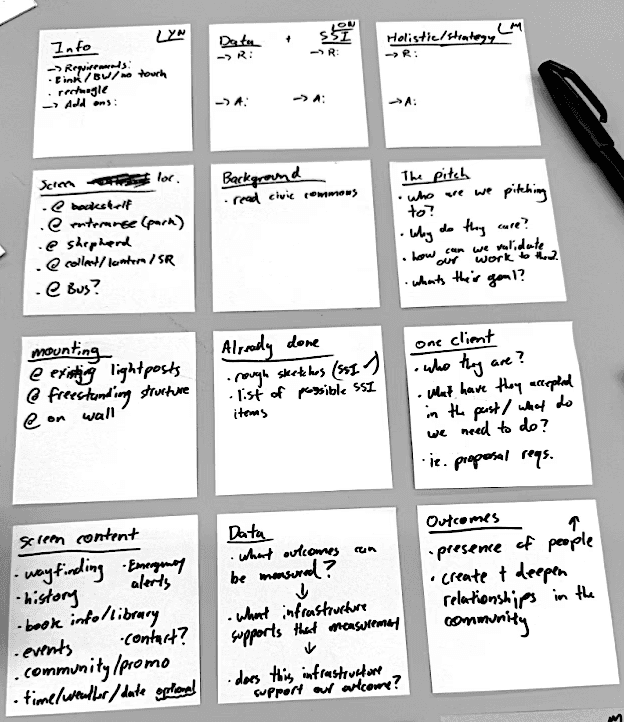 Info
LYN
→ Requirements:
· Eink/BW/no touch
· rectangle
→ Add ons:
Data + SSI
LON
→ R: → R:
→ A: → A:
Holistic/strategy
LM
→ R:
→ A:
Screen loc.
· @ bookshelf
· @ enterance (park)
· @ shepherd
· @ collect/lantern/SR
· @ Bus?
Background
· read civic commons
The pitch
· who are we pitching
to?
· Why do they care?
· how can we validate
our work to them?
· whats their goal?
mounting
@ existing lightposts
@ freestanding structure
@ on wall
Already done
· rough sketches (SSI ✓)
· list of possible SSI
items
one client
· who they are?
· what have they accepted
in the past/what do
we need to do?
· ie. proposal reqs.
Screen content
· wayfinding · Emergency
alerts
· history
· book info/library
· events · contact?
· community/promo
· time/weather/date optional
Data
· what outcomes can
be measured?
↓
· what infrastructure
supports that measurement
↓
· does this infrastructure
support our outcome?
Outcomes
· presence of people ↑
· create + deepen
relationships in the
community